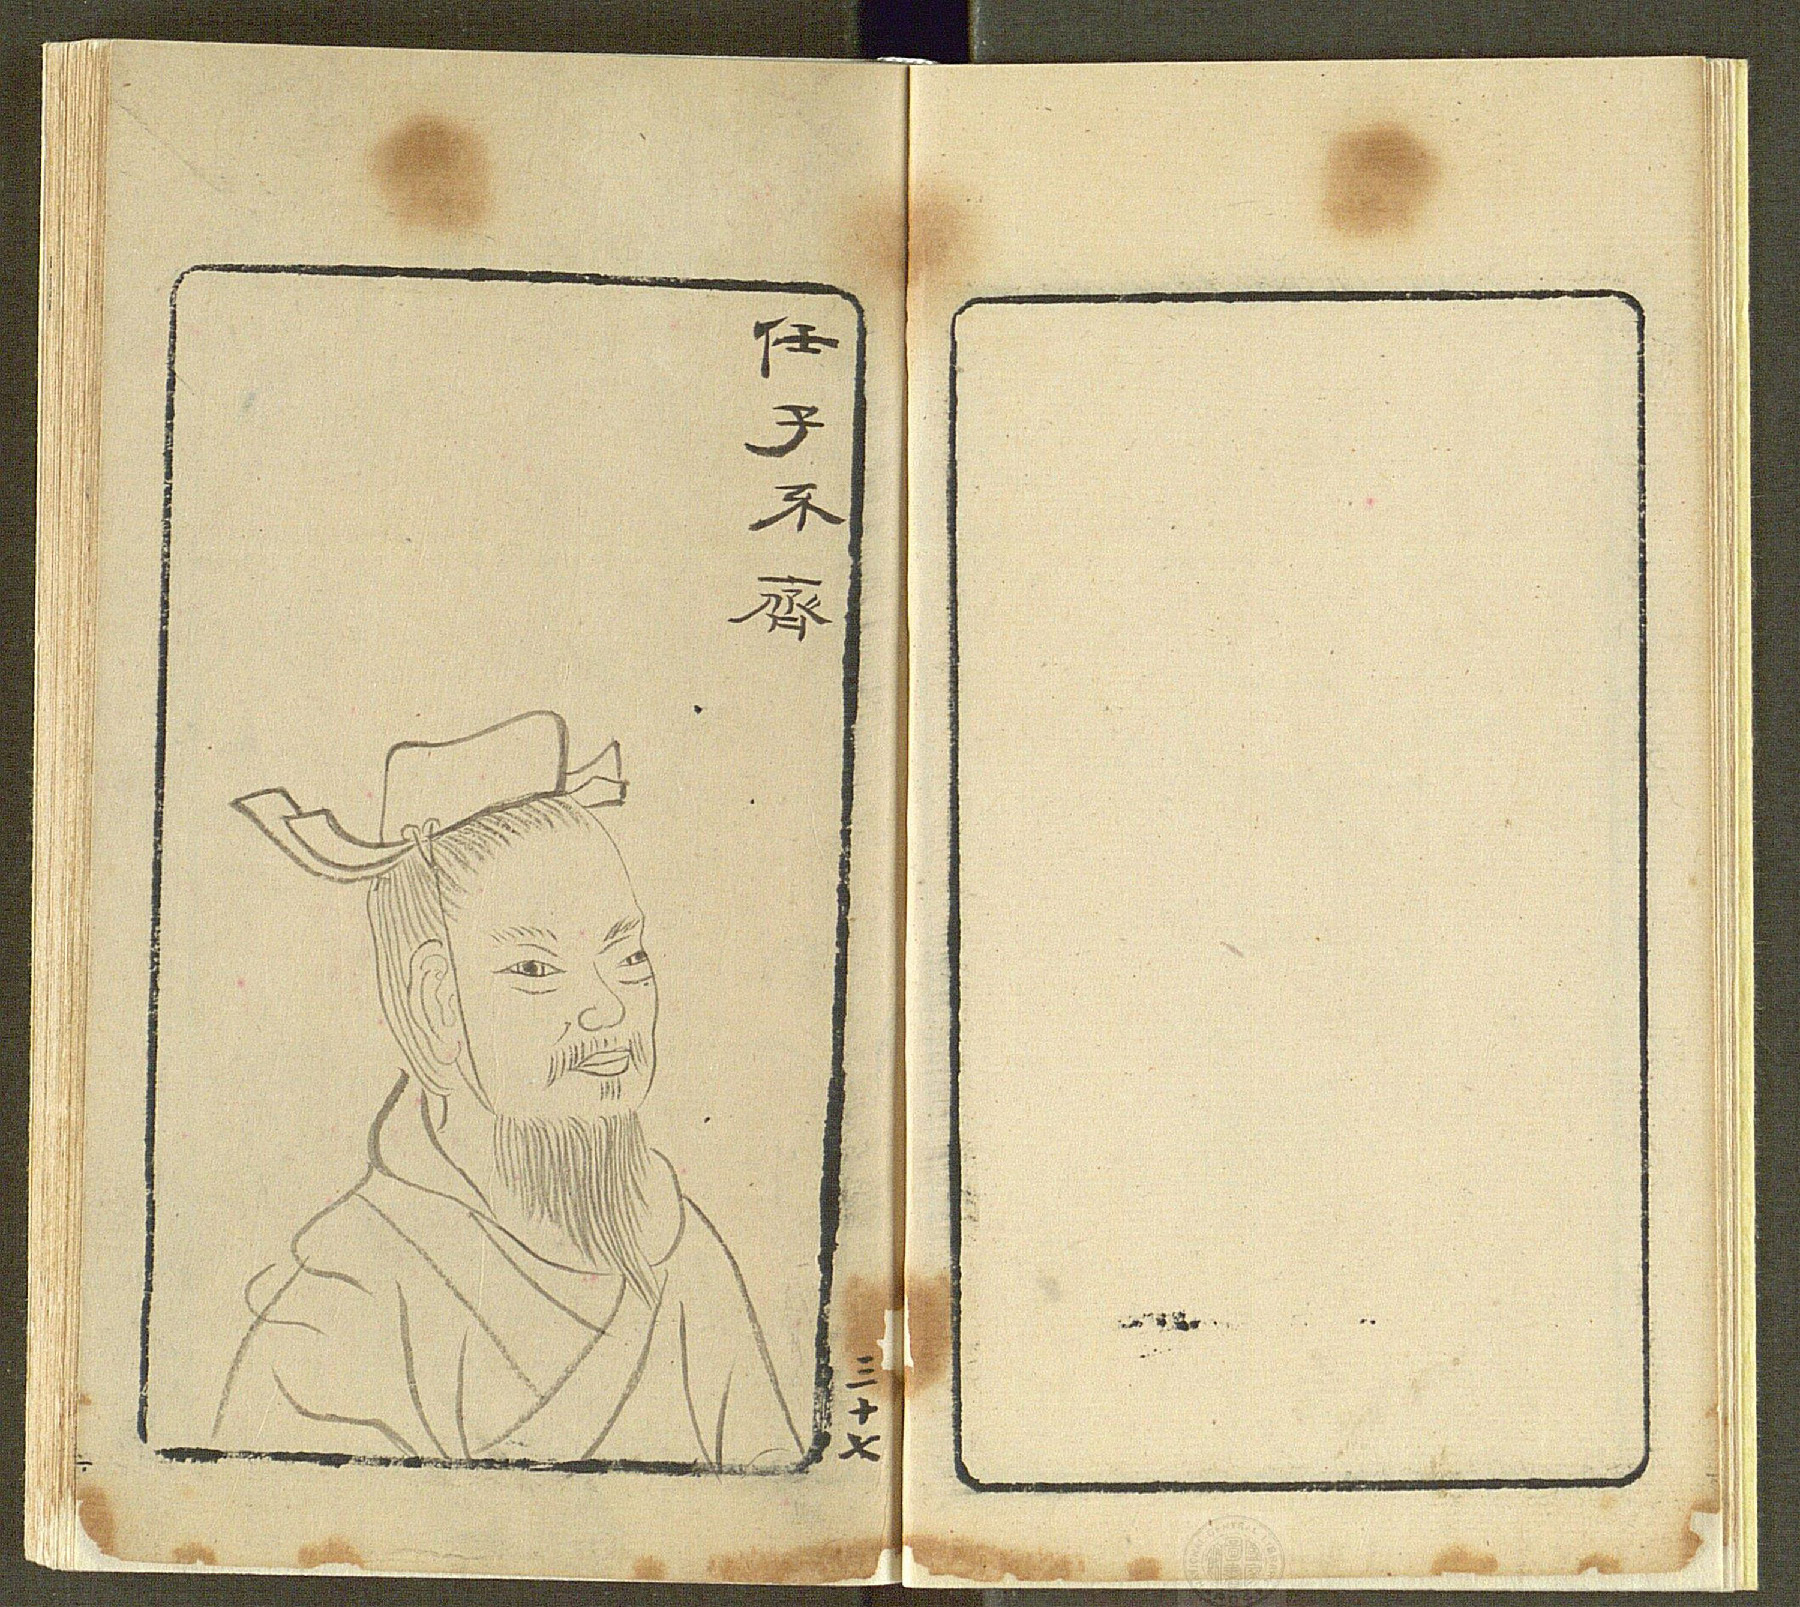 任子不齊
三十七